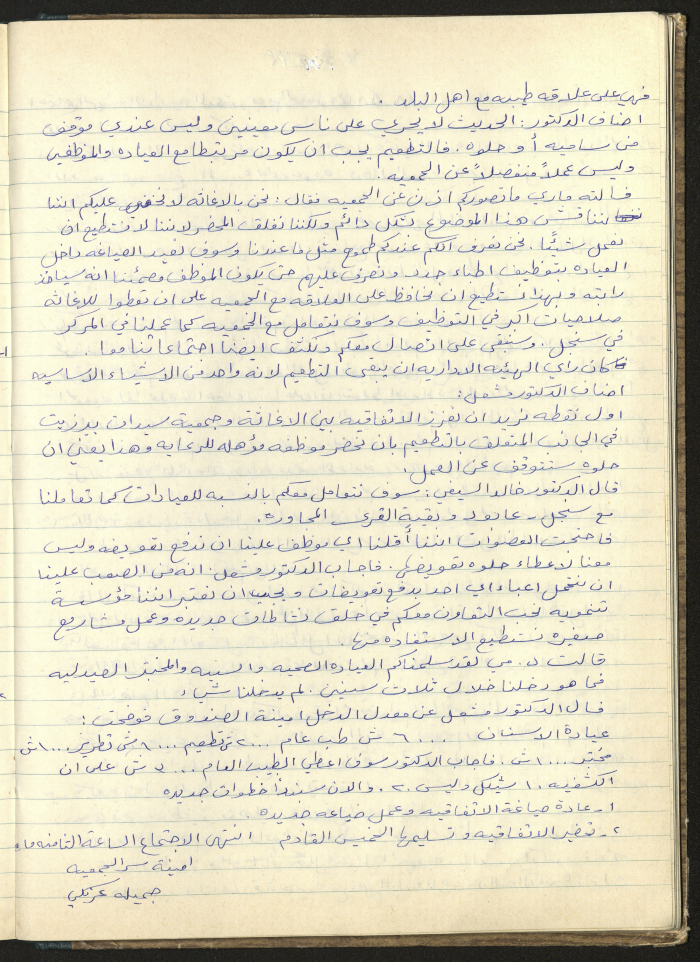 فهي على علاقه طيبه مع اهل البلد .
اضاف الدكتور : الحديث لا يجري على ناس معينين وليس عندي موقف
من ساميه أو حلوه . فالتطعيم يجب ان يكون مرتبطا مع العياده والموظفين
وليس عملاً منفصلاً عن الجمعيه .
فسالته ماري ما تصوركم اذن عن الجمعيه فقال : نحن بالاغاثه لا نخفي عليكم اننا
نناقش هذا الموضوع بشكل دائم ولكننا نغلق المحضر لاننا لا نستطيع ان
نعمل شيئًا . نحن نعرف انكم عندكم طموح مثل ما عندنا وسوف نعيد الصياغه داخل
العياده بتوظيف اطباء جدد ونصرف عليهم حتى يكون الموظف مطمئننا انه سياخذ
راتبه وبهذا نستطيع ان نحافظ على العلاقه مع الجمعيه على ان تعطوا للاغاثه
صلاحيات اكبر في التوظيف وسوف نتعامل مع الجمعيه كما عملنا في المركز
في سنجل . وسنبقى على اتصال معكم ونكثف ايضا اجتماعاتنا معا .
كان راي الهيئه الاداريه ان يبقى التطعيم لانه واحد من الاشياء الاساسيه
اضاف الدكتور مشعل :
اول نقطه نريد ان نفرز الاتفاقيه بين الاغاثة وجمعية سيدات بيرزيت
في الجانب المتعلق بالتطعيم بان نحضر موظفه مؤهله للرعايه وهذا يعني ان
حلوه ستتوقف عن العمل .
قال الدكتور خالد السيفي : سوف نتعامل معكم بالنسبه للعيادات كما تعاملنا
مع سنجل - عابود وبقية القرى المجاورة .
فاحتجت العضوات اننا أقلنا اي موظف علينا ان ندفع تعويضه وليس
معنا لاعطاء حلوه تعويضها . فاجاب الدكتور مشعل : انه من الصعب علينا
ان نتحمل اعباء اي احد بدفع تعويضات ويجب ان نعتبر اننا مؤسسة
تنمويه نحب التعاون معكم في خلق نشاطات جديده وعمل مشاريع
صغيره نستطيع الاستفاده منها .
قالت د. مي لقد سلمناكم العياده الصحيه والسنيه والمختبر الصيدليه
فما هو دخلنا خلال ثلاث سنين . لم يدخلنا شيء
فسال الدكتور مشعل عن معدل الدخل امينة الصندوق فوضحت :
عيادة الاسنان ٦٠٠٠ ش طب عام ٢٠٠٠ ش تطعيم ٦٠٠٠ ش تطريز ١٠٠٠ ش
مختبر ١٠٠٠ ش . فاجاب الدكتور سوف اعطي الطبيب العام ٣٠٠٠ ش على ان
الكشفيه ١٠ شيكل وليس ٢٠ . والان سنبدأ خطوات جديده
١- اعادة صياغة الاتفاقيه وعمل صياغه جديده
٢- تحضير الاتفاقيه وتسليمها الخميس القادم انتهى الاجتماع الساعة الثامنه مساء
امينة سر الجمعيه
جميله